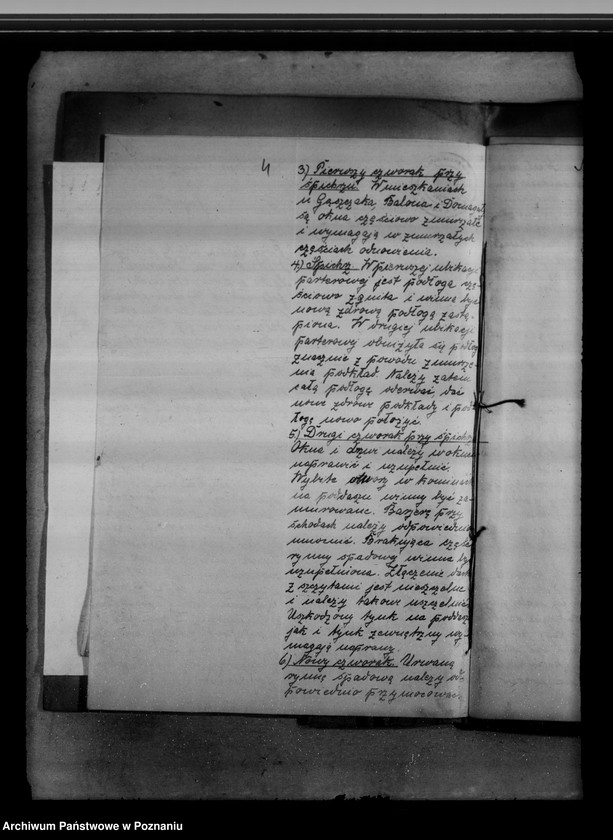 4
3) Pierwszy czworak przy
śpichrzu W mieszkaniach
u Gąszczaka, Balona i
są okna częściowo zmurszałe
i wymagają w zmurszałych
częściach odnowienia.
4) Śpichrz W pierwszej ubikacji
parterowej jest podłoga czę-
ściowo zgnita i winna być
nową zdrową podłogą zastą-
piona. W drugiej ubikacji
parterowej obniżyła się podłoga
znacznie z powodu zmursze-
nia podkład. Należy zatem
całą podłogę oderwać, dać
nowe zdrowe podkłady i pod-
łogę nowo położyć.
5) Drugi czworak przy śpichrzu
Okna i drzwi należy
naprawić i uzupełnić.
Wybite otwory w kominach
na poddaszu winny być za-
murowane. Barjerę przy
schodach należy odpowiednio
umocnić. Brakująca część
rynny spadowej winna być
uzupełniona. Złączenie dachu
z szczytami jest nieszczelne
i należy takowe uszczelnić.
Uszkodzony tynk na poddaszu
jak i tynk zewnętrzny wy-
magają naprawy.
6) Nowy czworak. Urwaną
rynnę spadową należy od-
powiednio przymocować
Archiwum Państwowe w Poznaniu